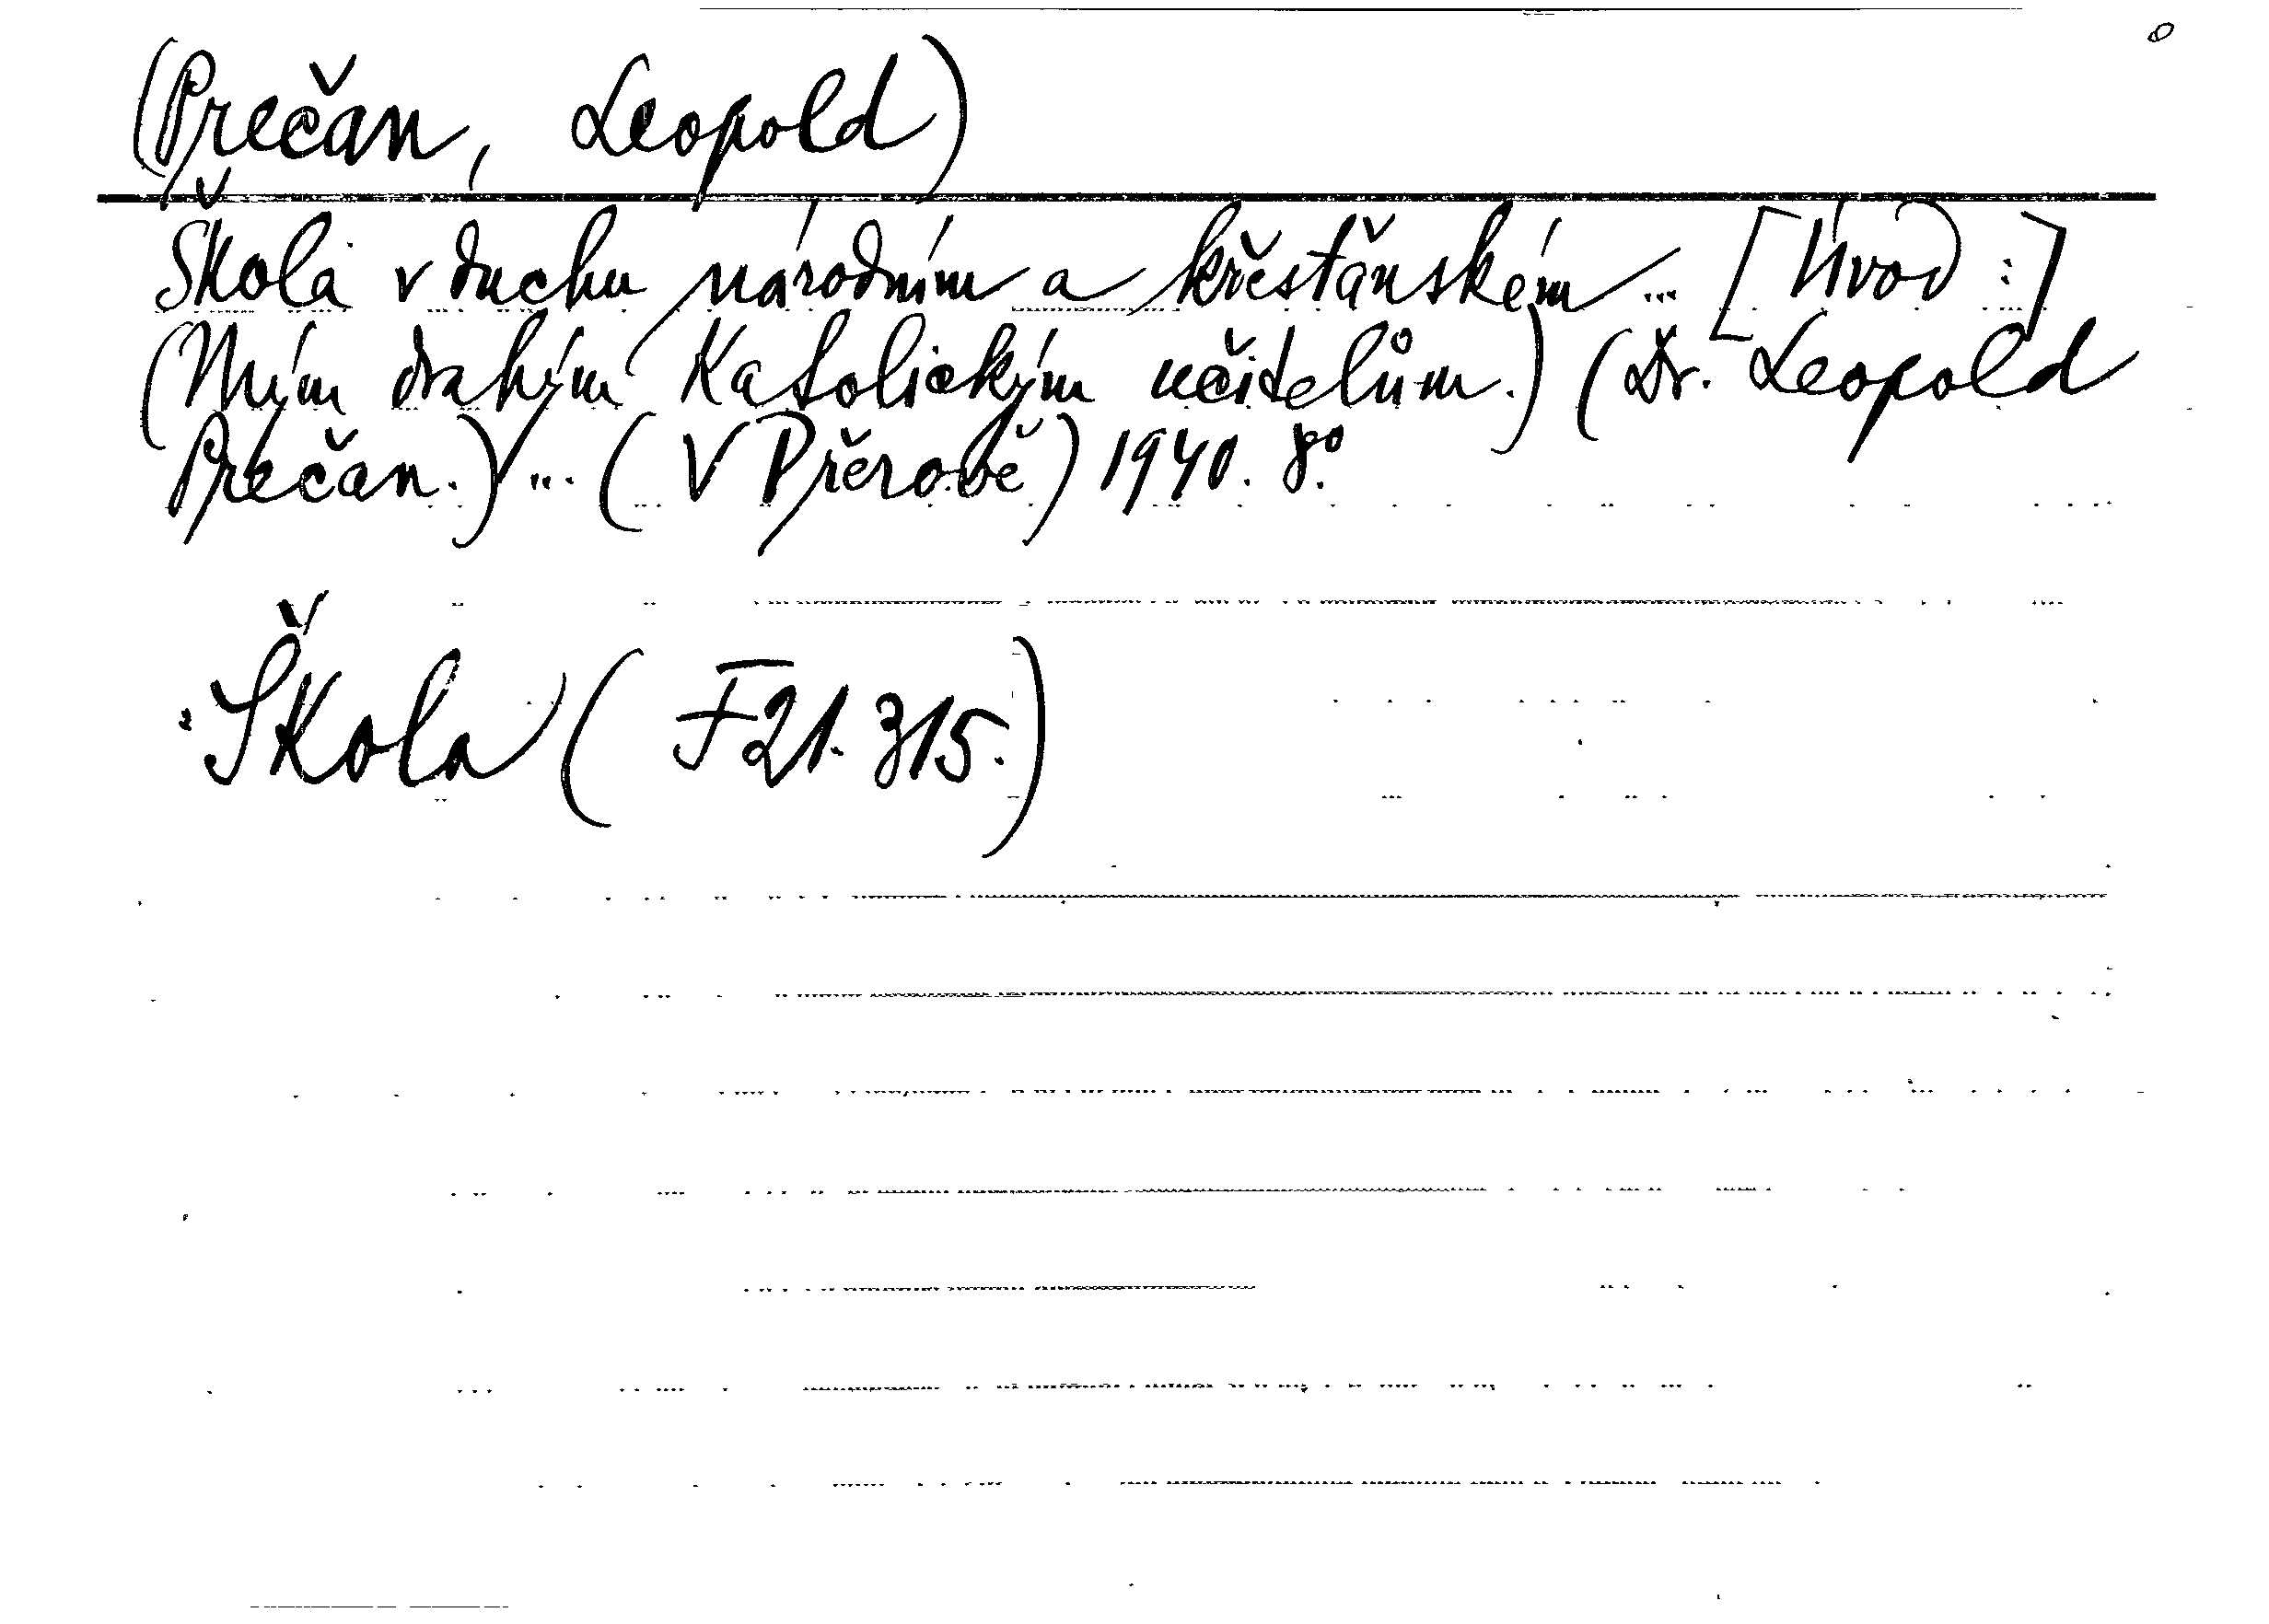 (Prečan, Leopold)
Škola v duchu národním a křesťanském ... [Úvod :]
(Mým drahým katolickým učitelům.) (Dr. Leopold
Prečan.) ... (V Přerově) 1940. 8°.
Škola (F 21.315.)